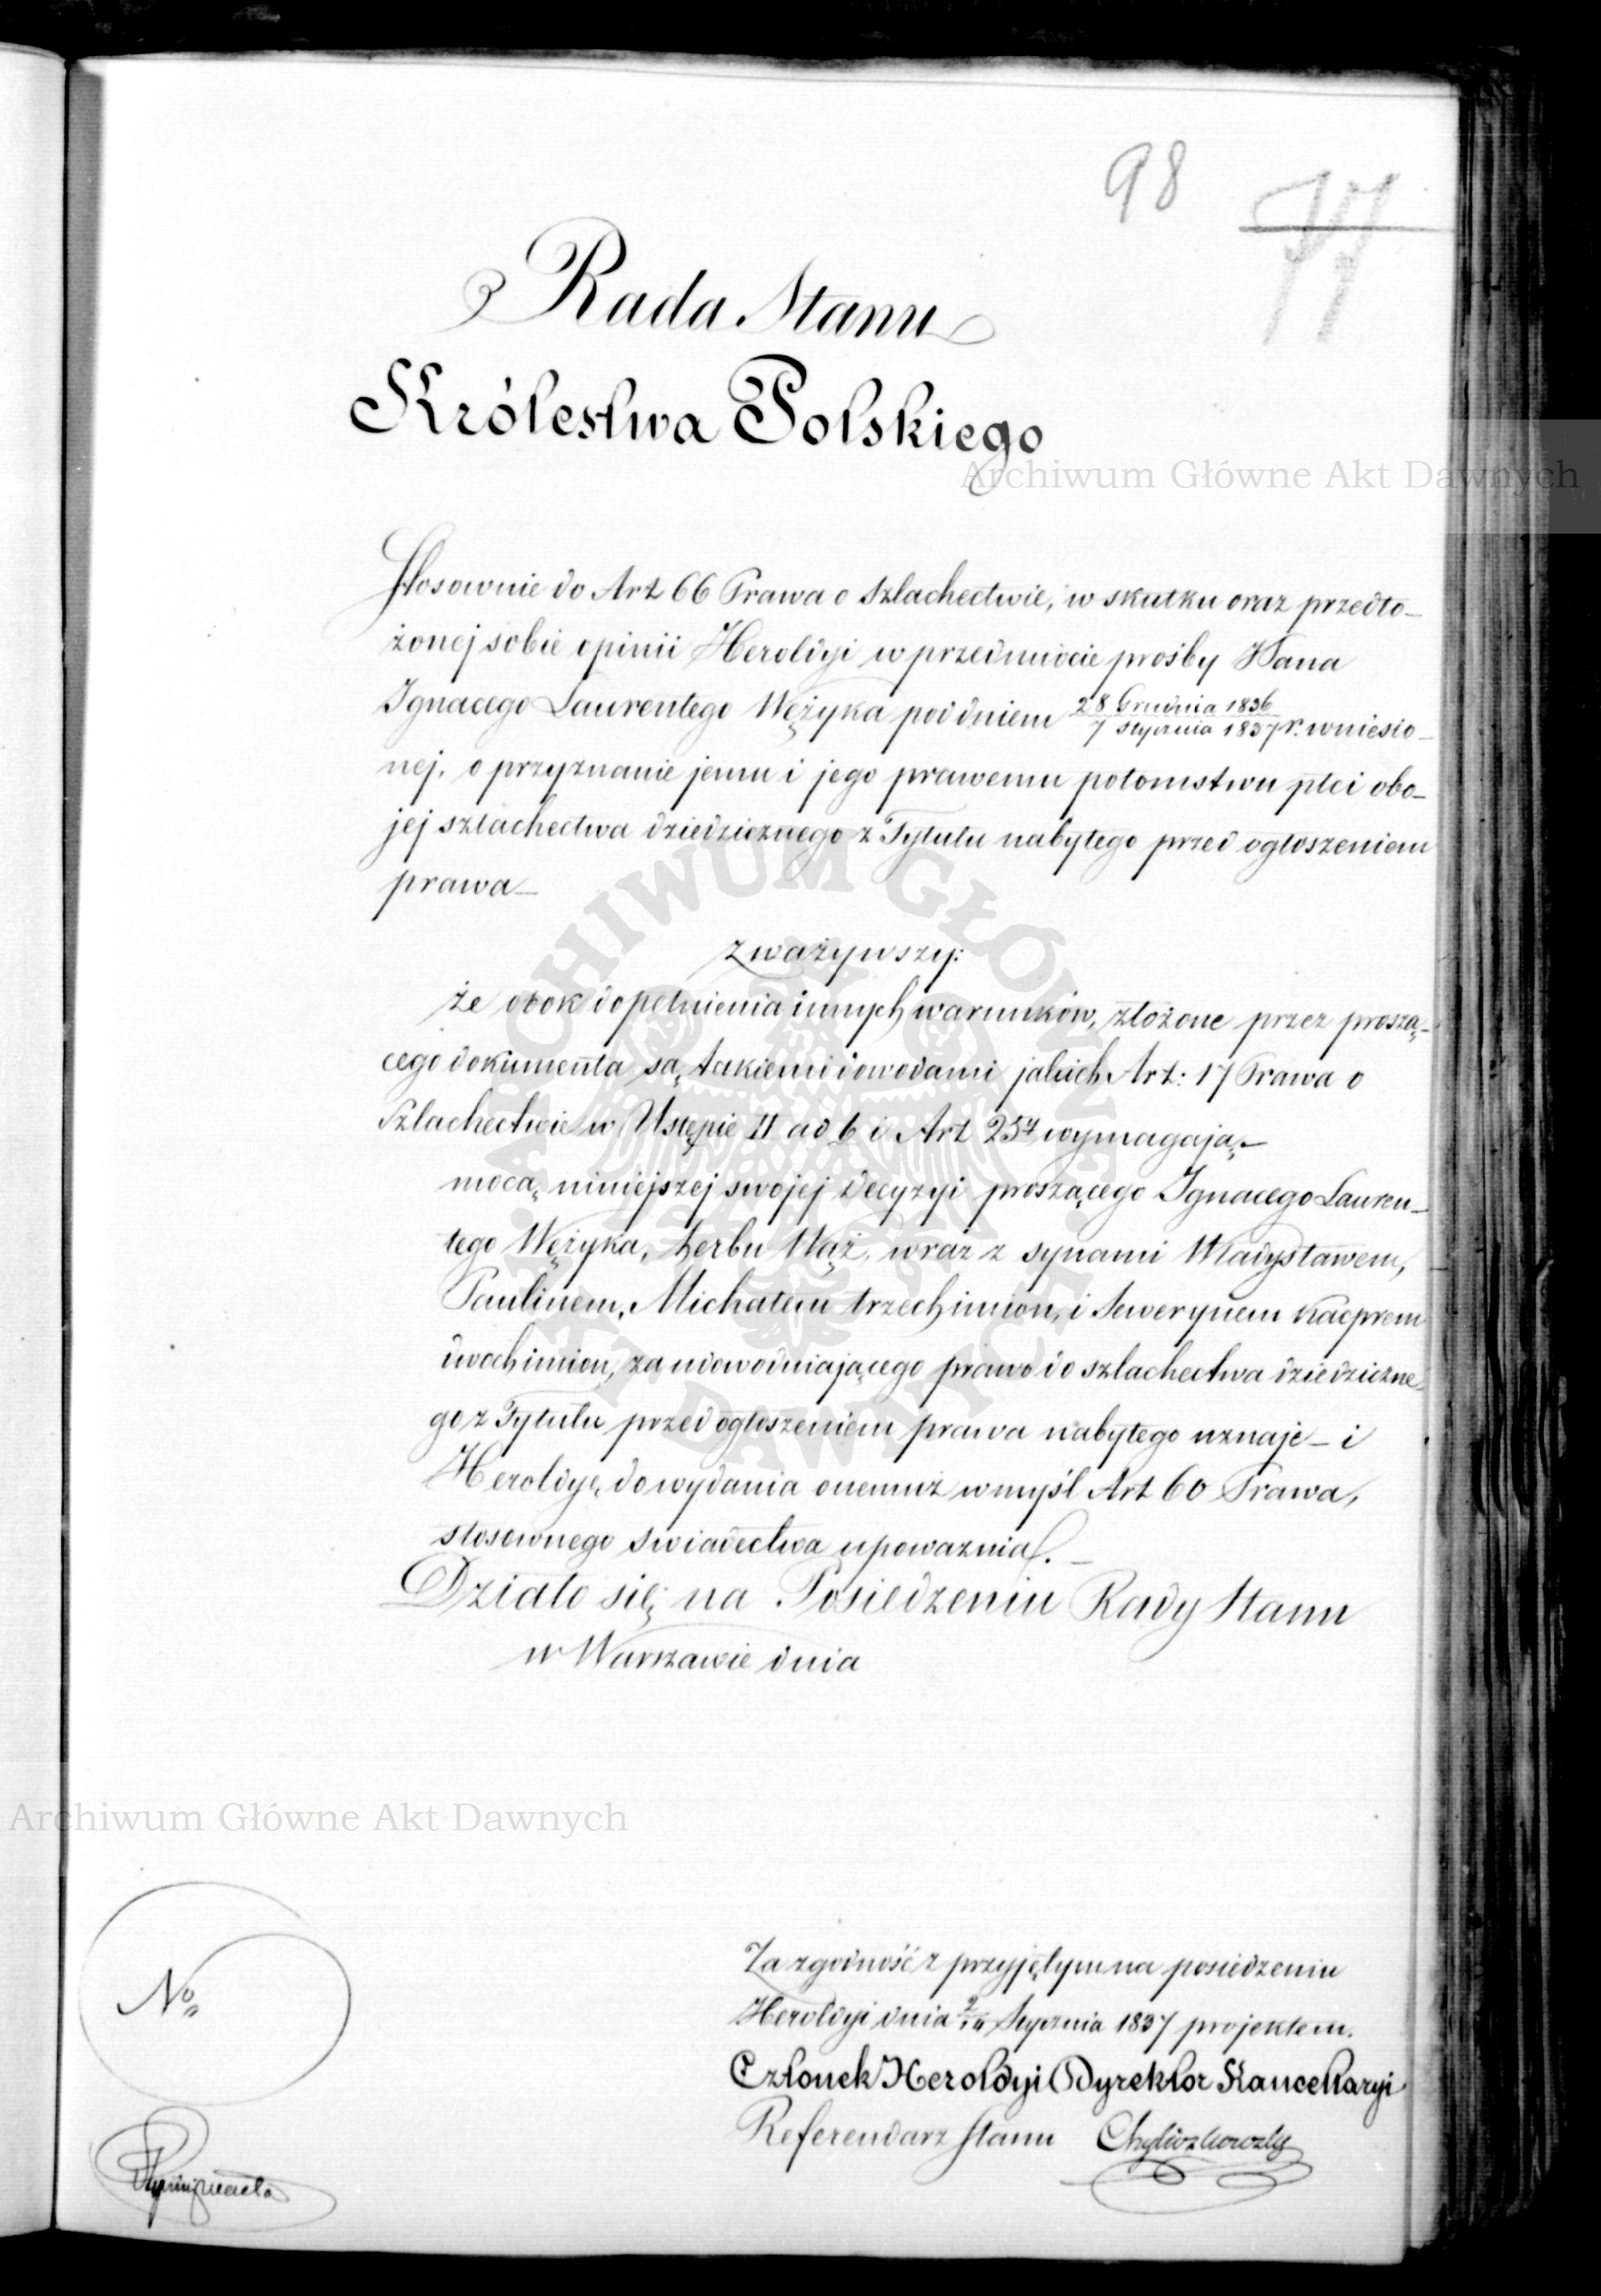 98
77
Rada Stanu
Królestwa Polskiego
Archiwum Główne Akt Dawnych
Stosownie do Art 66 Prawa o Szlachectwie, w skutku oraz przedło-
żonej sobie opinii Heroldyi w przedmiocie prośby Pana
Ignacego Laurentego Wężyka pod dniem 28 Grudnia 1836 / 7 Stycznia 1837 r. wniesio-
nej, o przyznanie jemu i jego prawemu potomstwu płci obo-
jej szlachectwa dziedzicznego z Tytułu nabytego przed ogłoszeniem
prawa—
zważywszy:
że obok dopełnienia innych warunków, złożone przez proszą-
cego dokumenta są, takiemi dowodami jakich Art: 17 Prawa o
Szlachectwie w Ustępie II ad 6 i Art 257 wymagają,—
mocą niniejszej swojej decyzyi proszącego Ignacego Lauren-
tego Wężyka, herbu Wąż, wraz z synami Władysławem,
Paulinem, Michałem trzech imion, i Sewerynem Kacprem
dwoch imion, za udowodniającego prawo do szlachectwa dziedziczne-
go z Tytułu przed ogłoszeniem prawa nabytego uznaje— i
Heroldyę, do wydania onemuż w myśl Art 60 Prawa,
stosownego świadectwa upoważnia.—
Działo się na Posiedzeniu Rady Stanu
w Warszawie dnia
Archiwum Główne Akt Dawnych
No
Za zgodność z przyjętym na posiedzeniu
Heroldyi dnia 2/14 Stycznia 1837 projektem.
Członek Heroldyi Dyrektor Kancellaryi
Referendarz Stanu
ARCHIWUM GŁÓWNE AKT DAWNYCH